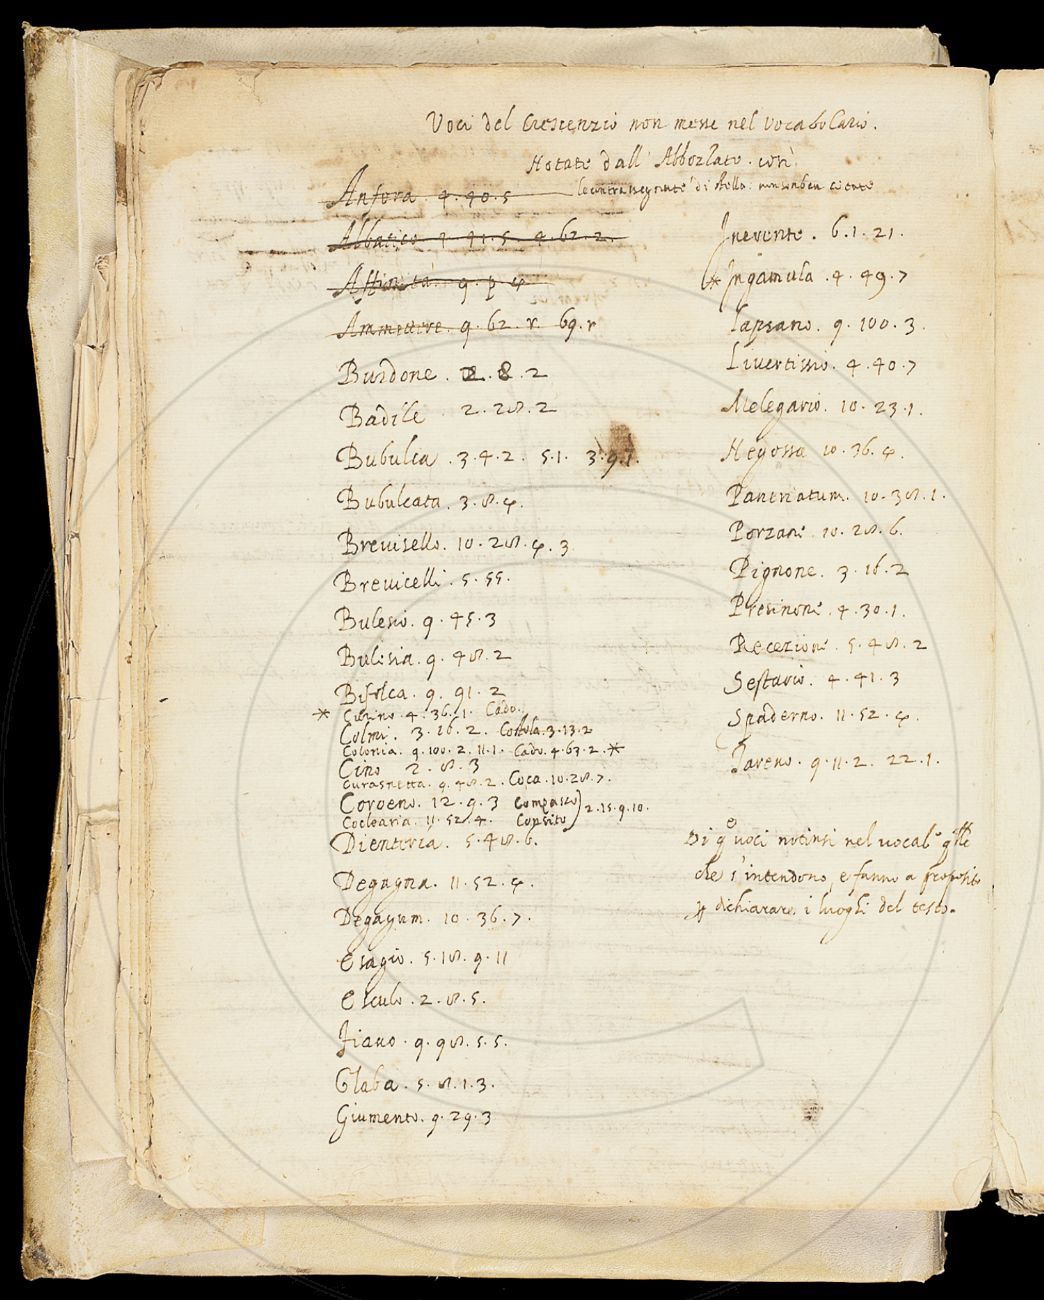 Voci del Crescenzio non messe nel Vocabolario.
Notate dall' Abbozzato. così
le contrassegnate di stella. non son ben citate
Anfora. 4. 40. 5
Albatico 4. 41. 5. 4. 62. 2.
Affinità. 9. p. 4
Ammettere. 9. 62. r. 69. r
Burdone. 2. 8. 2
Badile 2. 28. 2
Bubulca. 3. 4. 2. 5. 1. 3. 9. 1.
Bubulcata. 3. 8. 4.
Brevisello. 10. 28. 4. 3
Brevicelli. 5. 55.
Bulesio. 9. 45. 3
Bulesia. 9. 48. 2
Bifolca. 9. 91. 2
* Curino. 4. 36. 1. Cado.
Colmi. 3. 16. 2. Costola. 3. 13. 2
Colonia. 9. 100. 2. 11. 1. Cado. 4. 63. 2. *
Cino 2. 8. 3
Curasnetta. 9. 48. 2. Coca. 10. 28. 7.
Coroeno. 12. 9. 3 Compasso
Cocloaria. 11. 52. 4. Copsito 2. 15. 9. 10.
Dienteria. 5. 48. 6.
Degagna. 11. 52. 4.
Degagum. 10. 36. 7.
Esagio. 5. 18. 9. 11
Esculo. 2. 8. 5.
Fiano. 9. 98. 5. 5.
Glaba. 5. 8. 1. 3.
Giumento. 9. 29. 3
Inevente. 6. 1. 21.
* Ingamula. 4. 49. 7
Lapsano. 9. 100. 3.
Livertisio. 4. 40. 7
Melegario. 10. 23. 1.
Negossa 10. 36. 4.
Pantriatum. 10. 38. 1.
Porzane. 10. 28. 6.
Pignone. 3. 16. 2
Presinone. 4. 30. 1.
Recezione. 5. 48. 2
Sestario. 4. 41. 3
Spaderno. 11. 52. 4.
Tareno. 9. 11. 2. 22. 1.
Di qe voci notinsi nel vocab.o qlle
che s'intendono, e fanno a proposito
p dichiarare i luoghi del testo.